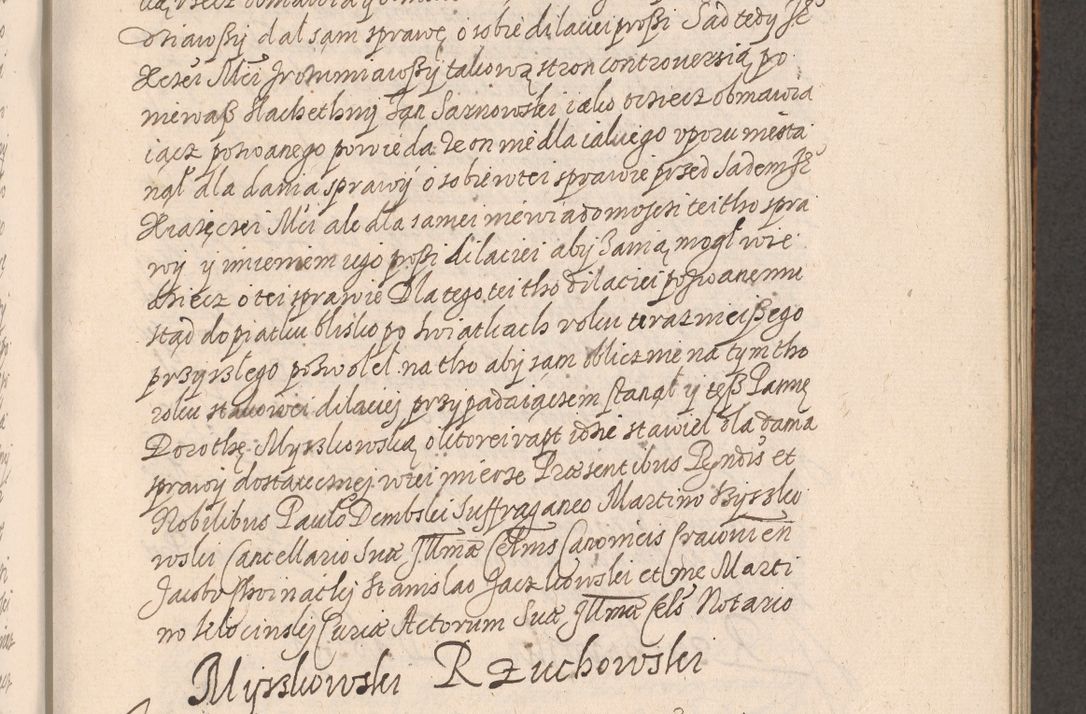 dziawszy dał sąm sprawę o sobie dilaciei prosi Sąd tedy Je
Xczei Mci zrozumiawszy takową stron controversią po
niewasz Slachethny Jan Sarnowski iako ociecz obmawia
iącz pozwanego powieda że on nie dla iakiego uporu niesta
nął dla dania sprawy o sobie wtei sprawie przed Sądem Je
Xiazęczei Mci ale dla samei niewiadomosczi tei tho spra
wy y imieniem iego prosi dilaciei aby zanią mogł wie
dziecz o tei sprawie Dla tego tei tho dilaciei pozwanemu
stąd do piatku blisko po swiatkach roku teraznieiszego
przyszłego pozwoleł na tho aby sam oblicznie na tym tho
roku stakowei dilaciej przypadaiączem stanął y tęsz Pannę
Dorothę Myszkowską o ktorei rapt idzie stawieł dla dania
sprawy dostateczney wtei mierze Præsentibus Rgndis et
Nobilibus Paulo Dembski Suffraganeo Martino Szyszko
wski Cancellario Suæ Illmæ Celtnis Canonicis Cracovien
Jacobo Chwinatkj Stanislao Jaczkowski et me Marti
no Kłocinskj Curiæ Actorum Suæ Illmæ Cels Notario
Myszkowski Rzuchowski